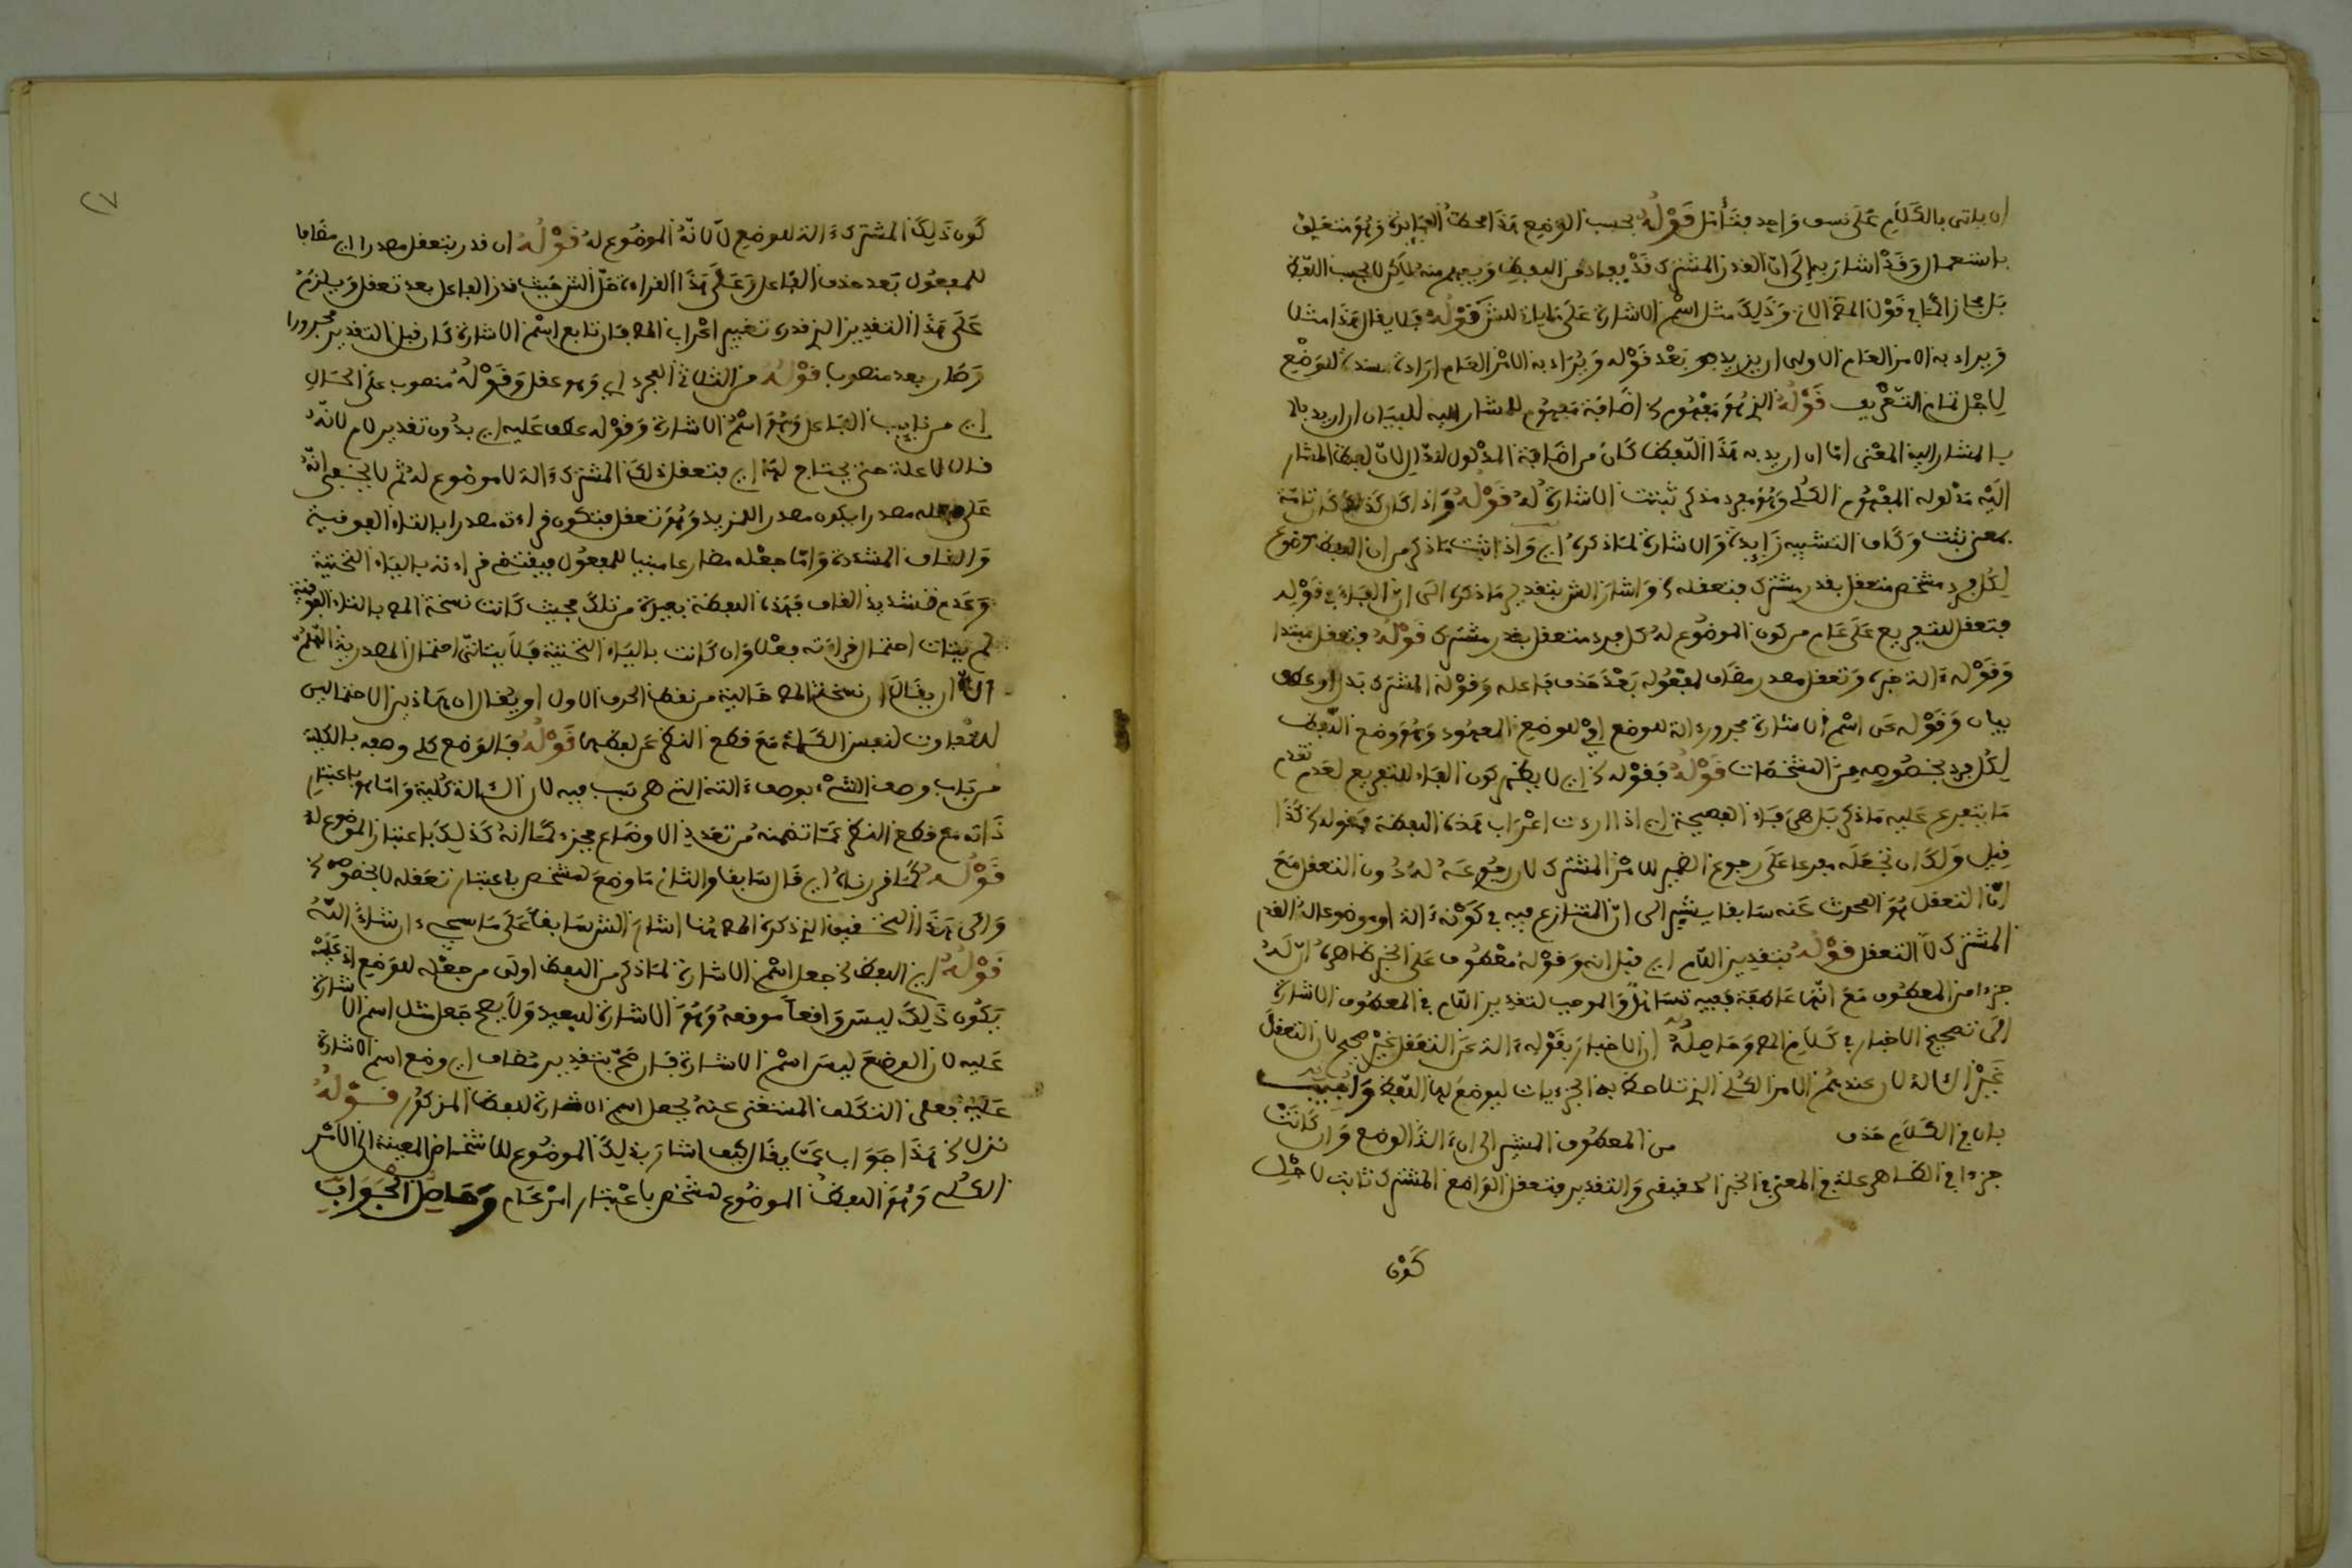 ان ياتى بالكلام على نسق واحد فتأمل قوله بحسب الوضع هذا محط الفايدة وهو متعلق
باستعمال وقد اشار به الى ان القدر المشترك قد يفاد من اللفظ ويفهم منه لكن لا بحسب اللفظ
بل مجازا كما فى قول المص الاتى وذلك مثل اسم الاشارة على ما ياتى للش قوله فلا يقال هذا مثلا
ويراد به الامر العام الاولى ان يزيد بعد قوله ويراد به الامر العام ارادة مستندة للوضع
لاجل تمام التعريف قوله الذى هو مفهوم اضافة مفهوم للمشار اليه للبيان ان اريد بالا
بالمشار اليه المعنى اما ان اريد به هذا اللفظ كان من اضافة المدلول للدال لان لفظ المشار
اليه مدلوله المفهوم الكلى وهو مجرد مذكر ثبتت الاشارة له قوله واذا كان كذلك كان تامة
بمعنى ثبت وكاف التشبيه زايدة والاشارة لما ذكره اى واذا ثبت ما ذكر من ان اللفظ موضوع
لكل فرد مشخص متعقل بقدر مشترك فتعقله واشار الش بتقدير ما ذكره الى ان الفاء فى قوله
فتعقل للتفريع على عام من كون الموضوع له كل فرد متعقل بقدر مشترك قوله فتعقل مبتدا
وقوله ءالة خبره وتعقل مصدر مضاف لمفعوله بعد حذف فاعله وقوله المشترك بدل او عطف
بيان وقوله عن اسم الاشارة مجرور ءالة للوضع اى للوضع المعهود وهو وضع اللفظ
لكل فرد بخصوصه من المشخصات قوله فقوله اى لا يظهر كون الفاء للتفريع لعدم تقدم
ما يتفرع عليه ما ذكر بل هى فاء الفصيحة اى اذا اردت اعراب هذه اللفظة فقوله كذا
قيل ولك ان تجعله مفرعا على رجوع الضمير للامر المشترك لان رجوعه له دون التعقل مع
ان التعقل هو المحدث عنه سابقا يشير الى ان المتنازع فيه فى كونه ءالة او موضوعا له القدر
المشترك لا التعقل قوله بتقدير اللام اى قبل انه وقوله معطوف على الخبر ظاهره ان له
جزءا من المعطوف مع انها عاطفة ففيه تسامح والموجب لتقدير اللام فى المعطوف الاشارة
الى تصحيح الاخبار فى كلام المص وحاصله ان الاخبار بقوله ءالة عن التعقل غير صحيح لان التعقل
غير الآلة لان عندهم الامر الكلى الذى تلاحظ به الجزءيات ليوضع لها اللفظ واجيب
بان فى الكلام حذف من المعطوف المشير الى ان ءالة الوضع وان كانت
جزءا فى الظاهر علة فى المعنى فى الخبر الحقيقى والتقدير فتعقل الواضع المشترك ثابت لاجل
كون
٢٧
كون ذلك المشترك ءالة للوضع لا لانه الموضوع له قوله ان قدر بتعقل مصدرا اى مضافا
للمفعول بعد حذف الفاعل وعلى هذا القراءة حل الش حيث قدر الفاعل بعد تعقل ويلزم
على هذا التقدير الذى قدره تغيير اعراب المص فان تابع اسم الاشارة كان قبل التقدير مجرورا
وصار بعد منصوبا قوله من الثلاثى المجرد اى وهو عقل وقوله منصوب على الحال
اى من نايب الفاعل وهو اسم الاشارة وقوله عطف عليه اى بدون تقدير لام لانه
قال لا علة حتى يحتاج لها اى فتعقل ذلك المشترك ءالة لا موضوع له ثم لا يخفى انه
على جعله مصدرا يكون مصدر المزيد وهو تعقل فتكون قراءته مصدرا بالتاء الفوقية
والقاف المشددة واما جعله مضارعا مبنيا للمفعول فيقتضى قراءته بالياء التحتية
وعدم تشديد القاف فهذه اللفظة بعيدة من تلك بحيث كانت نسخة المص بالتاء الفوقية
لم يتأت احتمال قراءته فعلا وان كانت بالياء التحتية فلا يتأتى احتمال المصدرية اللهم
الا ان يقال ان نسخة المص خالية من نقط الحرف الاول او يقال ان هاذين الاحتمالين
للتفاوت لنفس الكلمة مع قطع النظر عن لفظها قوله فالوضع كلى وصفه بالكلية
من باب وصف الشىء بوصف ءالته التى هى سبب فيه لان الآلة كلية واما هو باعتبار
ذاته مع قطع النظر عما تضمنه من تعدد الاوضاع فجزءى كما انه كذلك باعتبار الموضوع له
قوله كما قررناه اى قال سابقا والثانى ما وضع لمشخص باعتبار تعقله لا بخصوصه
والى هذا التحقيق الذى ذكره المص هنا اشار الش سابقا على ما سيجىء ان شاء الله
قوله اى اللفظ جعل اسم الاشارة لما ذكر من اللفظ اولى من جعله للوضع اذ عليه
يكون ذلك ليس واقعا موقعه وهو الاشارة للبعيد ولا يصح جعل مثل اسم الاشارة
عليه لان الوضع ليس اسم الاشارة فان صح بتقدير مضاف اى وضع اسم الاشارة
عليه فعلى التكلف المستغنى عنه بجعل اسم الاشارة للفظ المذكور قوله
نزل هذا جواب عما يقال كيف اشار بذلك الموضوع للاشخاص المعينة الى الامر
الكلى وهو اللفظ الموضوع لمشخص باعتبار امر عام وحاصل الجواب